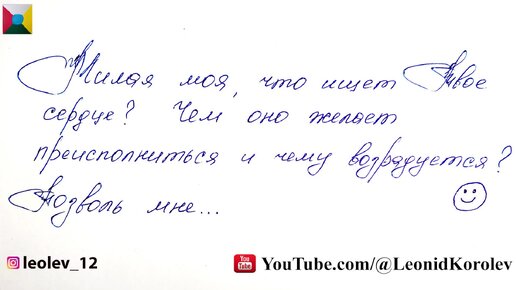 Милая моя, что ищет Твое
сердце? Чем оно желает
преисполниться и чему возрадуется?
Позволь мне...
leolev_12
YouTube.com/@LeonidKorolev
You Tube